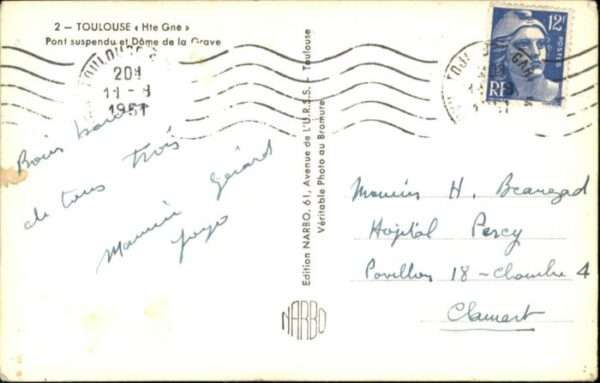 2 - TOULOUSE « Hte Gne »
Pont suspendu et Dôme de la Grave
TOULOUSE GARE
20H
11 - 8
1951
12F
RF
Bons baisers
de tous trois
Maurice Gérard
Edition NARBO, 61, Avenue de l'U.R.S.S. - Toulouse
Véritable Photo au Bromure
NARBO
Monsieur H. Beauregard
Hôpital Percy
Pavillon 18 - Chambre 4
Clamart